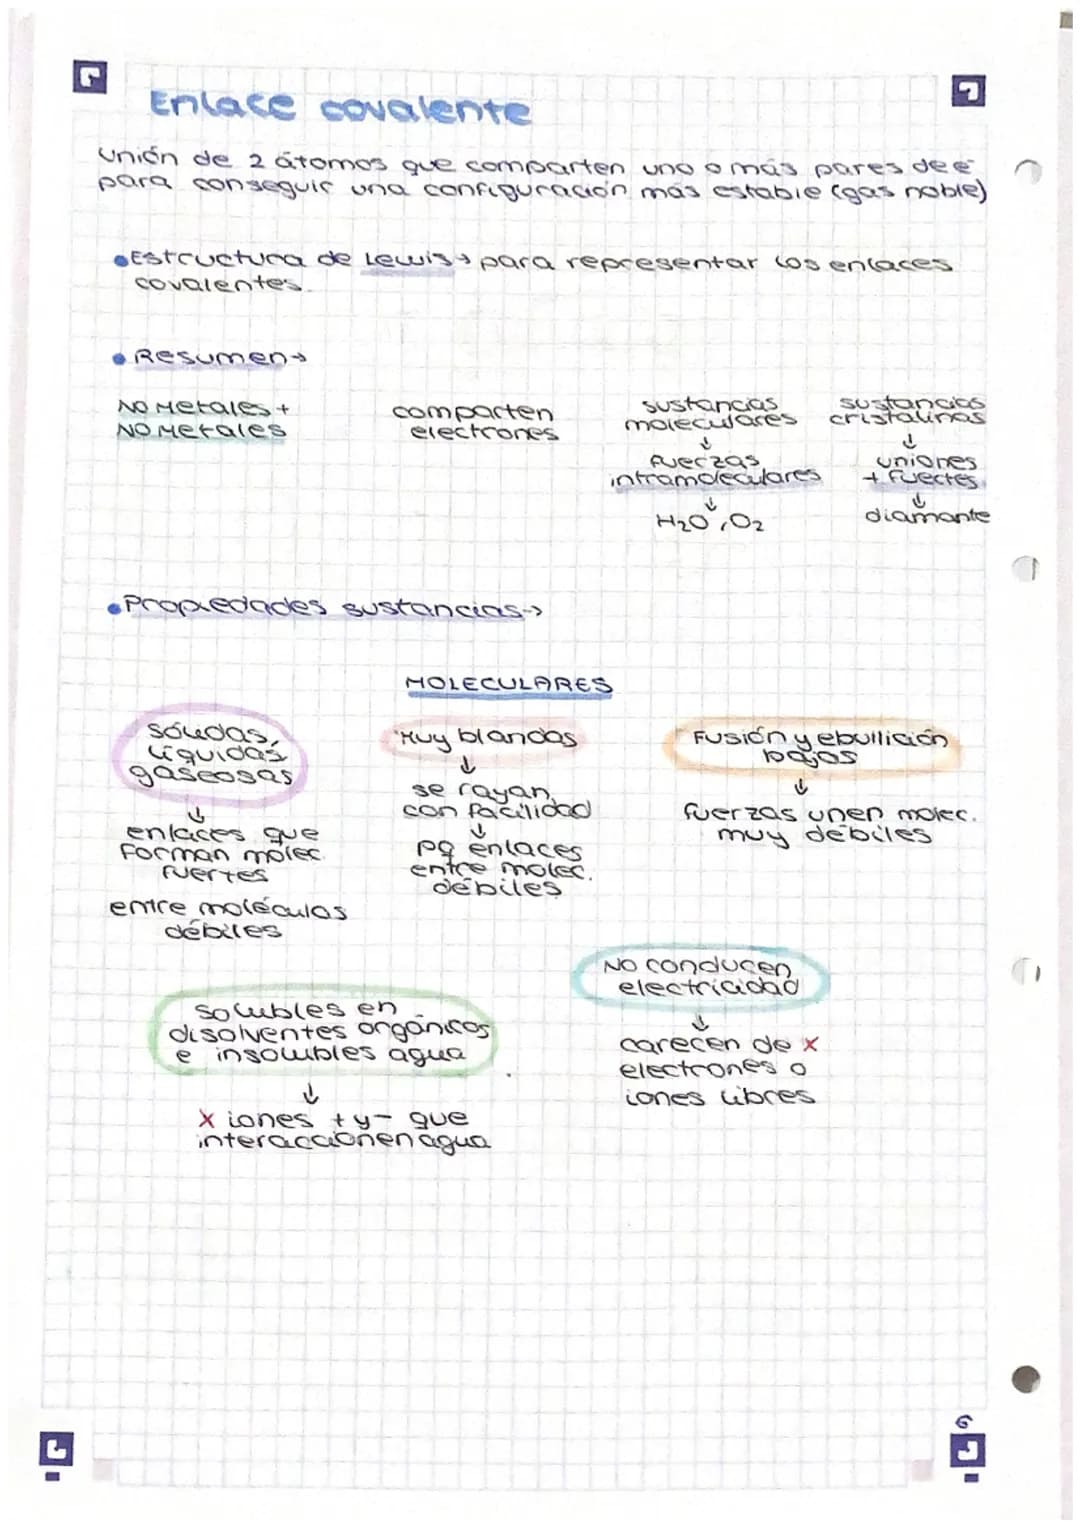 Enlace covalente
Unión de 2 átomos que comparten uno o más pares de e⁻
para conseguir una configuración más estable (gas noble)
• Estructura de Lewis → para representar los enlaces
covalentes.
• Resumen →
NO Metales +
NO Metales
comparten
electrones
sustancias
moleculares
↓
fuerzas
intramoleculares
↓
H₂O, O₂
sustancias
cristalinas
↓
uniones
+ fuertes
↓
diamante
• Propiedades sustancias →
MOLECULARES
sólidas,
líquidas,
gaseosas
↓
enlaces que
forman molec.
fuertes
entre moléculas
débiles
Muy blandas
↓
se rayan
con facilidad
↓
pq enlaces
entre molec.
débiles
Fusión y ebullición
bajos
↓
fuerzas unen molec.
muy débiles
solubles en
disolventes orgánicos
e insolubles agua
↓
X iones + y - que
interaccionen agua
NO conducen
electricidad
↓
carecen de x
electrones o
iones libres
6